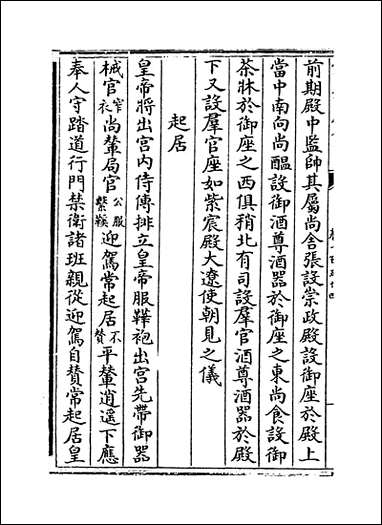 前期殿中監帥其屬尚舍張設崇政殿設御座於殿上
當中南向尚醖設御酒尊酒器於御座之東尚食設御
茶牀於御座之西俱稍北有司設羣官酒尊酒器於殿
下又設羣官座如紫宸殿大遼使朝見之儀
起居
皇帝將出宮内侍傳排立皇帝服鞾袍出宮先帶御器
械官窄衣尚輦局官公服繫鞵迎駕常起居不贊平輦逍遥下應
奉人守踏道行門禁衛諸班親從迎駕自贊常起居皇